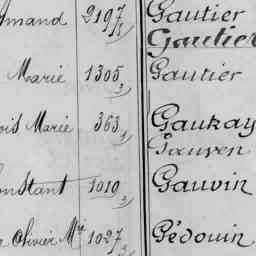 mand 2197 Gautier
Gautier
Marie 1305 Gautier
ois Marie 363 Gaukay
Gauven
onstant 1019 Gauvin
Olivier Mie 1027 Gédouin